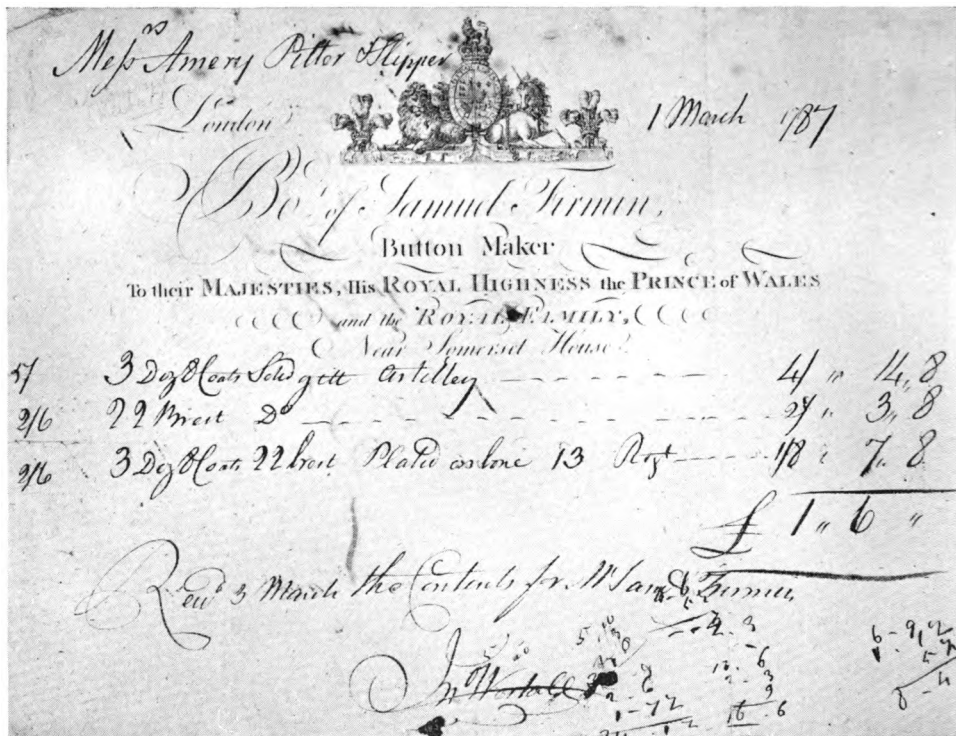 Messrs Amery Pitter & Slipper
London 1 March 1787
Bot of Samuel Firmin,
Button Maker
To their MAJESTIES, His ROYAL HIGHNESS the PRINCE of WALES
and the ROYAL FAMILY,
Near Somerset House.
5/ 3 Doz 8 Coats Solid gilt Artilley 4/ " 14 " 8
2/6 22 Brest Do 2/ " 3 " 8
2/6 3 Doz 8 Coats 22 brest Plated on bone 13 Regt 1/8 7 " 8
£ 1 " 6 "
Recd 3 March the Contents for Mr Saml Firmin